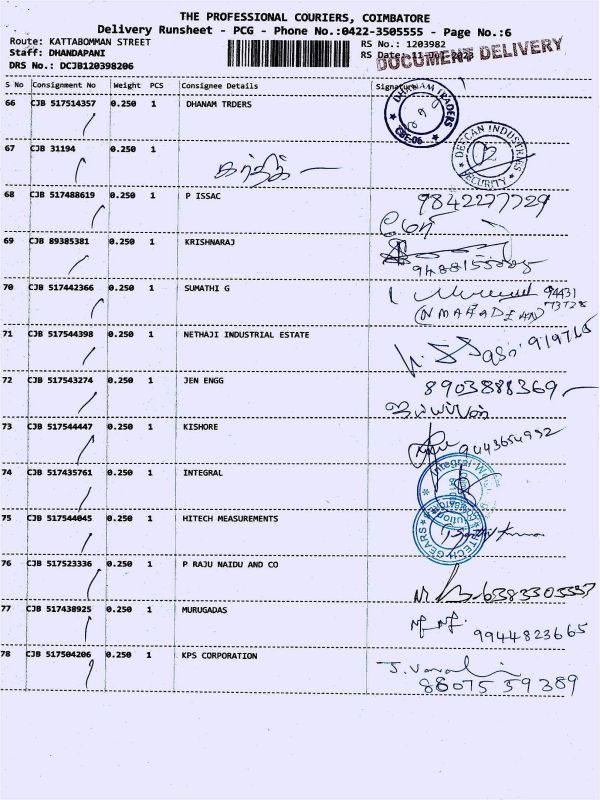 THE PROFESSIONAL COURIERS, COIMBATORE
Delivery Runsheet - PCG - Phone No.:0422-3505555 - Page No.:6
Route: KATTABOMMAN STREET
RS No.: 1203982
Staff: DHANDAPANI
RS Date:
DOCUMENT DELIVERY
DRS No.: DCJB120398206
S No Consignment No Weight PCS Consignee Details Signature
66 CJB 517514357 0.250 1 DHANAM TRDERS
DHANAM TRADERS
CBE-06
67 CJB 31194 0.250 1
கார்த்திக்
DECCAN INDUSTRIES
SECURITY
68 CJB 517488619 0.250 1 P ISSAC
9842277729
69 CJB 89385381 0.250 1 KRISHNARAJ
70 CJB 517442366 0.250 1 SUMATHI G
94431
73728
71 CJB 517544398 0.250 1 NETHAJI INDUSTRIAL ESTATE
72 CJB 517543274 0.250 1 JEN ENGG
8903888369
73 CJB 517544447 0.250 1 KISHORE
74 CJB 517435761 0.250 1 INTEGRAL
75 CJB 517544045 0.250 1 HITECH MEASUREMENTS
TECH GEARS
76 CJB 517523336 0.250 1 P RAJU NAIDU AND CO
77 CJB 517438925 0.250 1 MURUGADAS
9944823665
78 CJB 517504206 0.250 1 KPS CORPORATION
88075 59389